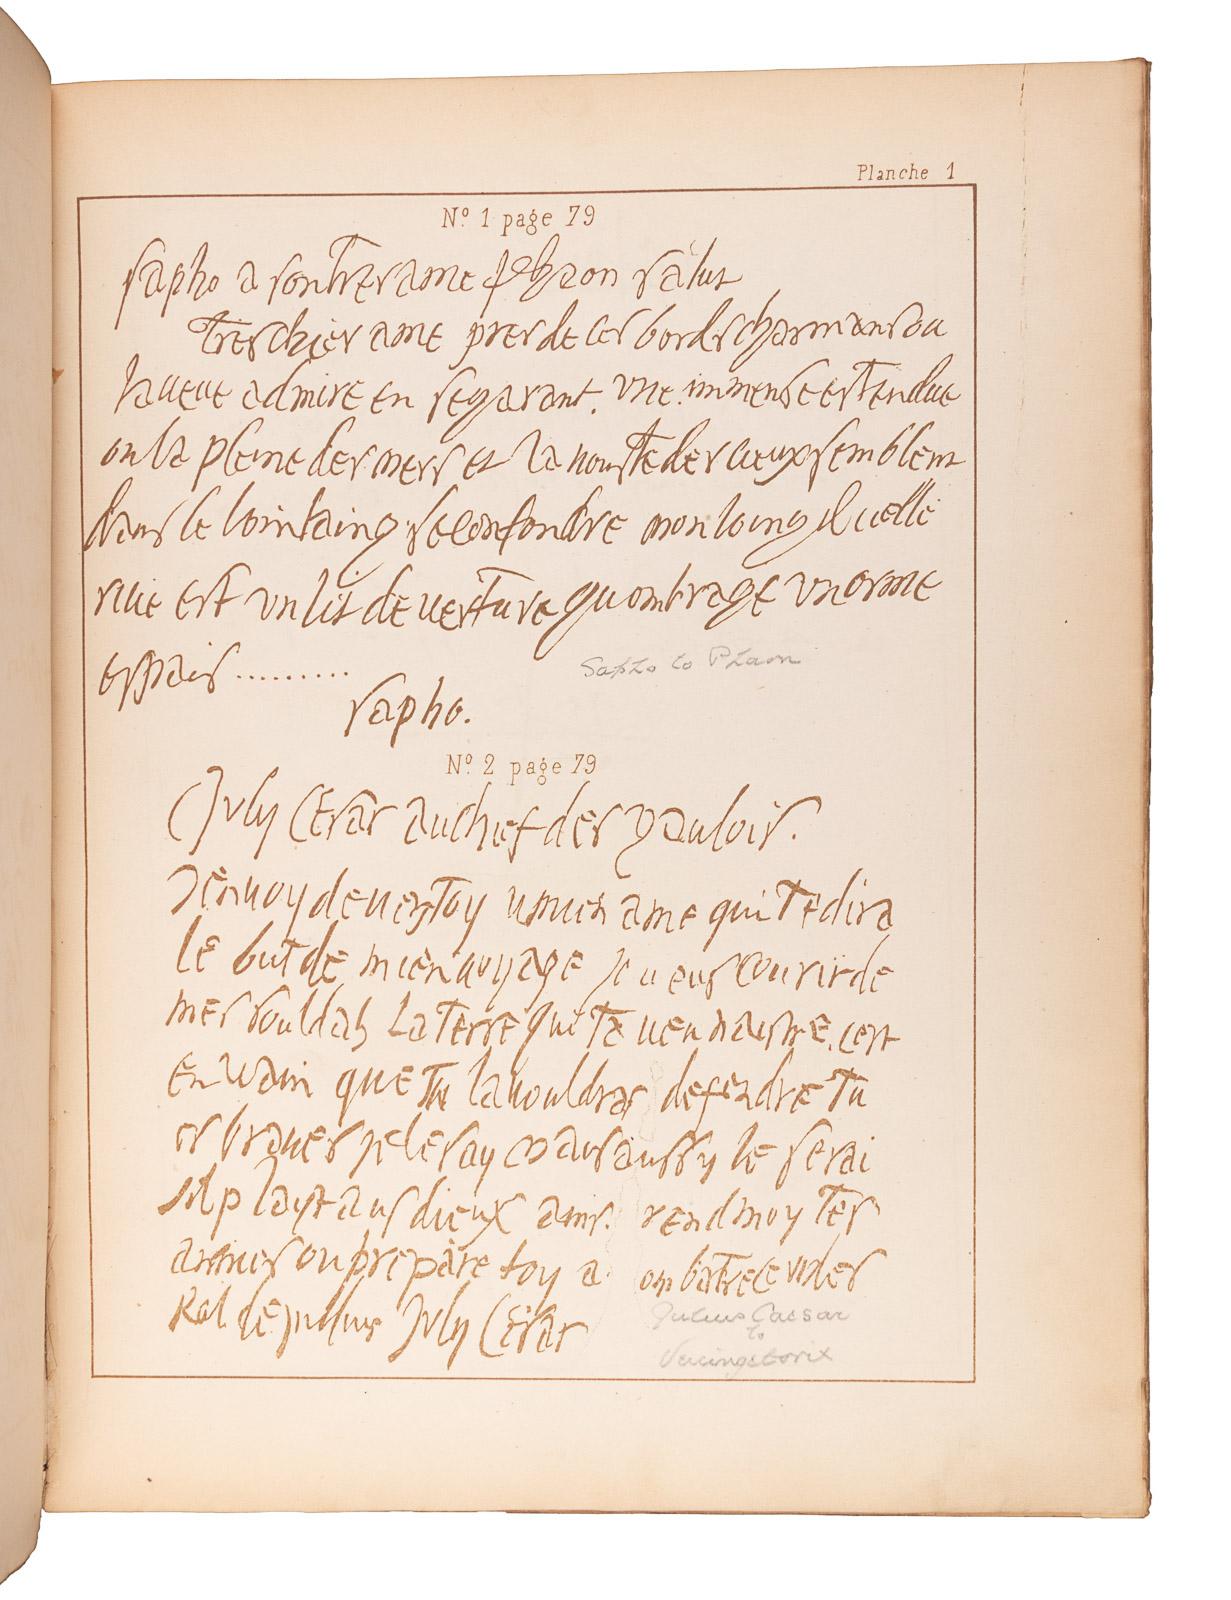 Planche 1
Nº 1 page 79
sapho a son tres ame phaon salut
Tres chier ame pres de ces bords charmans ou
la veue admire en segarant. vne immense estendue
ou la pleine des mers et la vouste des cieux semblent
dans le lointaing se confondre mon loing
rive est vn lit de verture quombrage vn orme
espais .........
Sapho to Phaon
sapho.
Nº 2 page 79
July Cesar au chief des gaulois.
Jenvoy devers toy un mien ame qui te dira
le but de mien voyage je veus couvrir de
mes souldats La terre qui ta veu naistre. cest
En vain que Tu la vouldras defendre Tu
es braves je le say mais aussy le serai
sil playt aus dieux ains. rend moy Tes
armes ou prepare toy a ombatre ce vi des
Kal de jullius July Cesar
Julius Caesar
to
Vercingetorix